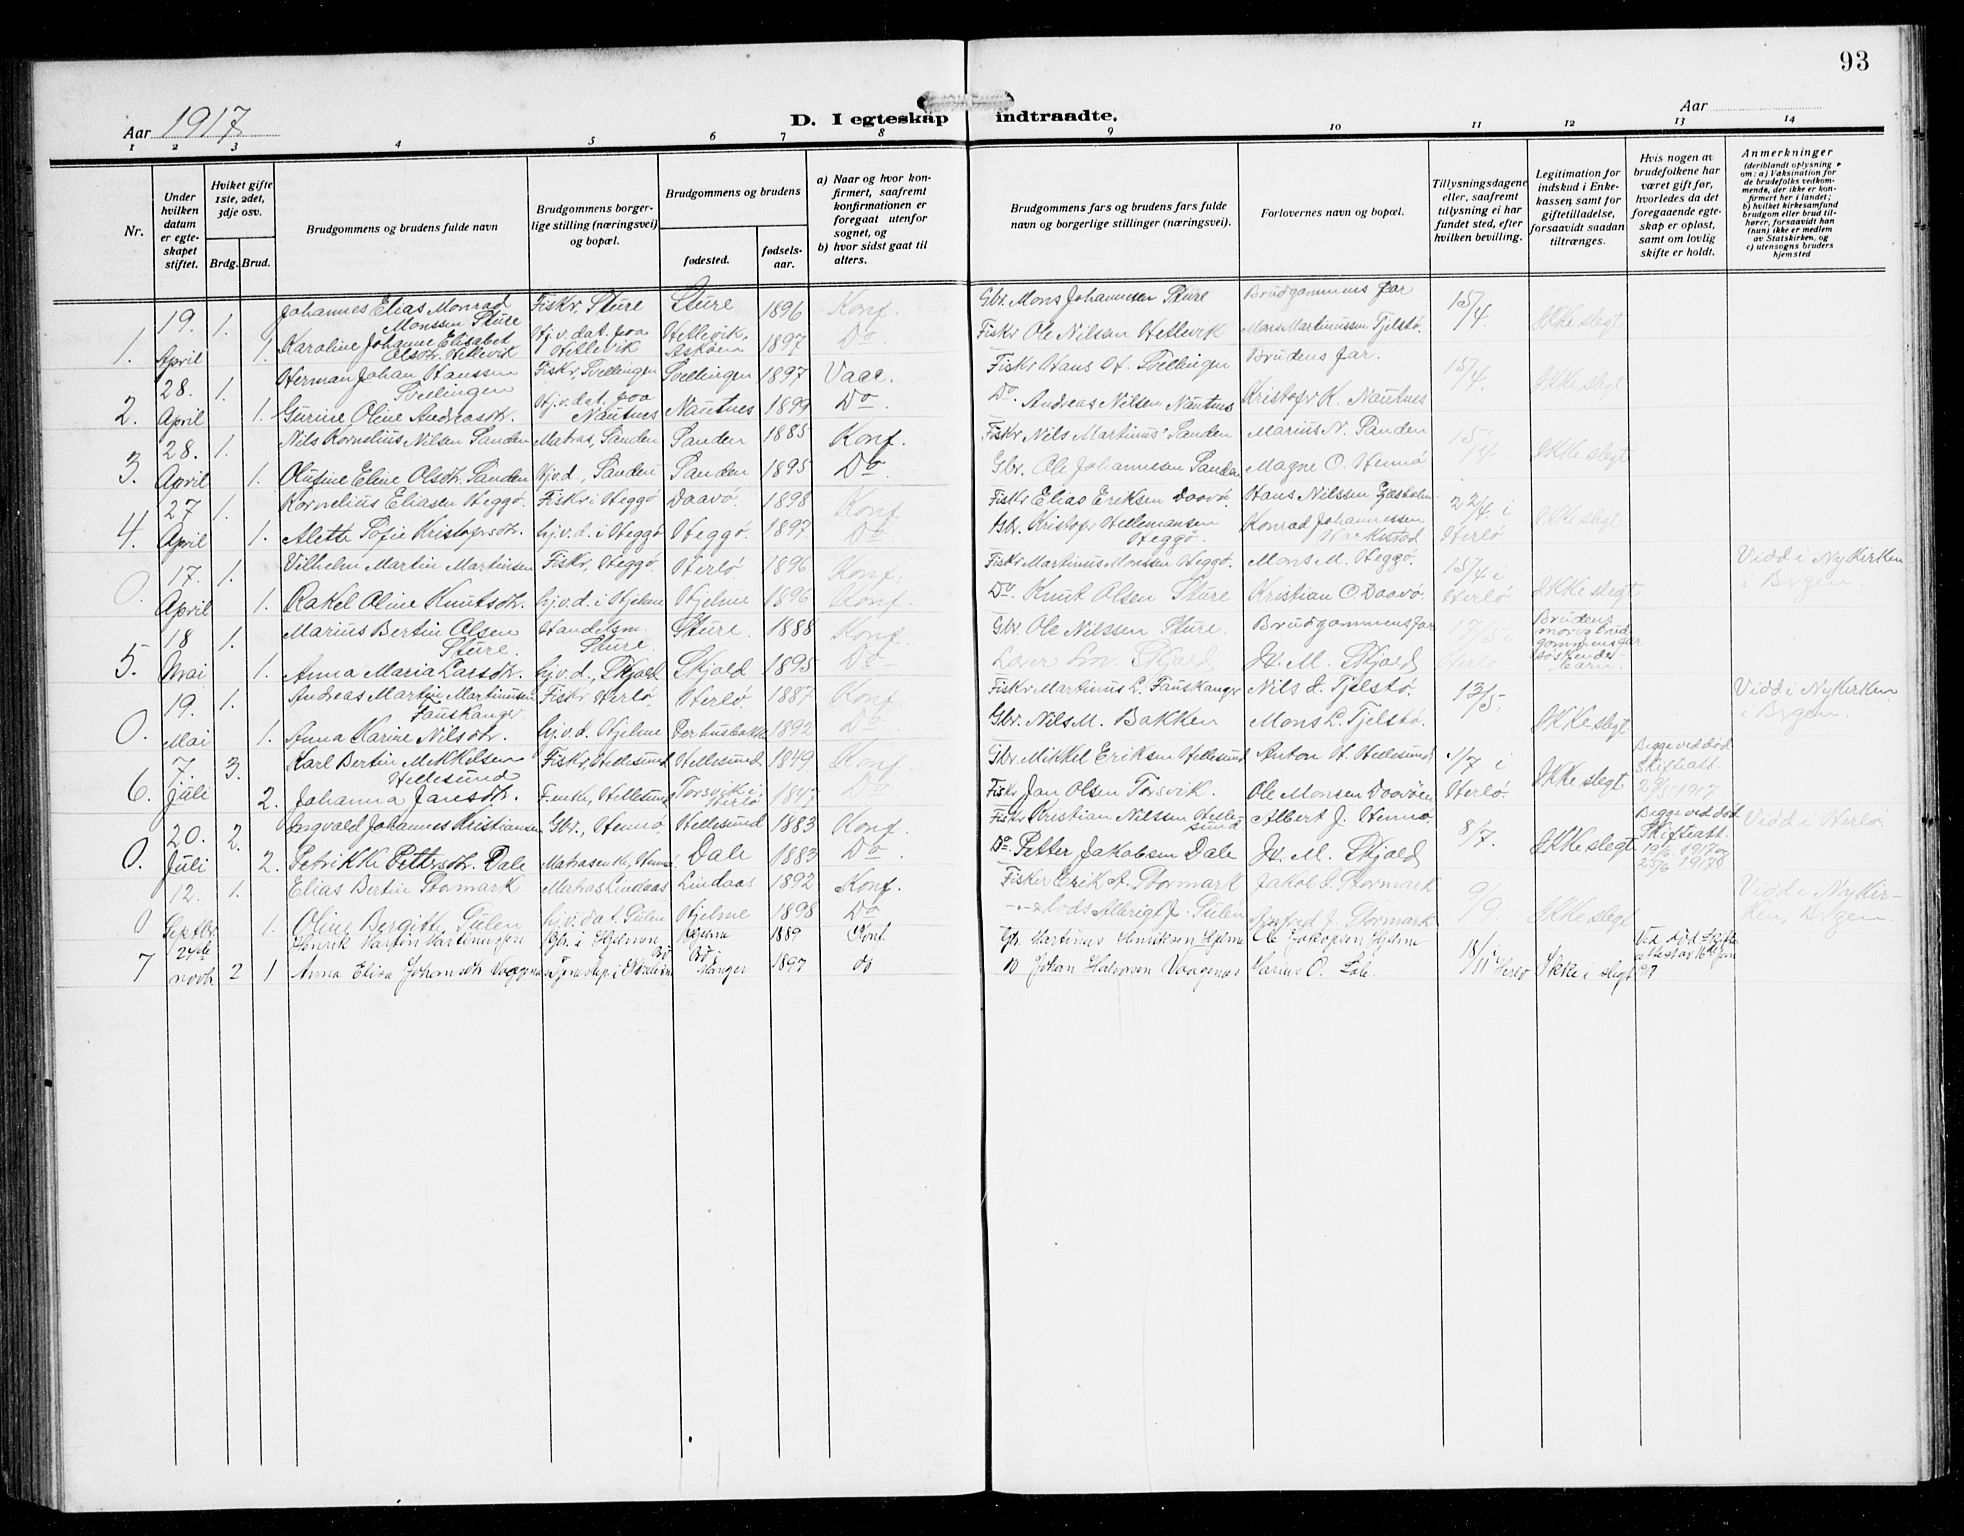 93
Aar 1917
D. I egteskap indtraadte.
Aar
1 2 3 4 5 6 7 8 9 10 11 12 13 14
Nr.
Under hvilken datum er egteskapet stiftet.
Hviket gifte 1ste, 2det, 3dje osv.
Brdg. Brud.
Brudgommens og brudens fulde navn
Brudgommens borgerlige stilling (næringsvei) og bopæl.
Brudgommens og brudens
fødested.
fødselsaar.
a) Naar og hvor konfirmert, saafremt konfirmationen er foregaat utenfor sognet, og
b) hvor sidst gaat til alters.
Brudgommens fars og brudens fars fulde navn og borgerlige stillinger (næringsvei).
Forlovernes navn og bopæl.
Tillysningsdagene eller, saafremt tillysning ei har fundet sted, efter hvilken bevilling.
Legitimation for indskud i Enkekassen samt for giftetilladelse, forsaavidt saadan tiltrænges.
Hvis nogen av brudefolkene har været gift før, hvorledes da det foregaaende egteskap er opløst, samt om lovlig skifte er holdt.
Anmerkninger
(deriblandt oplysning om: a) Vaksination for de brudefolks vedkommende, der ikke er konfirmert her i landet; b) hvilket kirkesamfund brudgom eller brud tilhører, forsaavidt han (hun) ikke er medlem av Statskirken, og c) utensogns bruders hjemsted
19. 1. Johannes Elias Monrad Monssen Sture Fiskr, Sture Sture 1896 Konf. Gbr. Mons Johannesen Sture Brudgommens far 15/4. Ikke slegt
1. April 1. Karoline Johanne Elisabet Olsdtr. Hellevik Hj.v. dat. paa Hellevik Hellevik, Askøen 1897 Do Fiskr Ole Nilsen Hellevik Mons Martinussen Tjelstø.
28. 1. Herman Johan Hanssen Svellingen Fiskr, Svellingen Svellingen 1897 Vacc. Fiskr Hans H. Svellingen Brudens far. 15/4. Ikke slegt
2. April 1. Gurine Oline Andreasdtr. Hj.v. dat. paa Nautnes Nautnes 1899 Do Do. Andreas Nilsen Nautnes Kristofer K. Nautnes
28. 1. Nils Kornelius Nilsen Sanden Matros, Sanden Sanden 1885 Konf. Fiskr Nils Martinus Sanden Marius N. Sanden 15/4 Ikke slegt
3. April 1. Olufine Eline Olsdtr. Sanden Hj.v.d., Sanden Sanden 1895 Do Gbr. Ole Johannesen Sanden Magne O. Hennø
27 1. Kornelius Eliasen Heggø. Fiskr i Heggø Daavø. 1898 Konf Fiskr Elias Eriksen Daavø. Hans Nilssen 22/4 i Herlø Ikke slegt
4. April 1. Alette Sofie Kristofersdtr. hj.v.d. i Heggø Heggø. 1897 Do Gbr. Kristofer Hellemansen Heggø. Konrad Johannessen
17. 1. Vilhelm Martin Martinsen Fiskr, Heggø Herlø 1896 Konf. Fiskr Martinus Monssen Heggø. Mons M. Heggø. 15/4 i Herlø Ikke slegt Vidd i Nykirken i Brgen.
0. April 1. Rakel Oline Knutsdtr. hj.v.d. i Hjelme Hjelme 1896 Konf Do. Knut Olsen Sture Kristian O Daavø.
18 1. Marius Bertin Olsen Sture. Handelsm. Sture. Sture. 1888 Konf. Gbr. Ole Nilssen Sture. Brudgommens far 17/5 i Herlø Brudens mor og brudgommens far søskendebarn.
5. Mai 1. Anna Maria Larsdtr. hj.v.d., Skjold Skjold 1895 Do Lærer Skjold H. M. Skjold
19. 1. Andreas Martin Martinusen Fauskanger. Fiskr, Herlø. Herlø. 1887 Konf. Fiskr Martinus L. Fauskanger Nils J. Tjelstø. 13/5. Ikke slegt Vidd i Nykirken i Brgen.
0. Mai 1. Anna Karine Nilsdtr. hj.v.d. Hjelme Perhusbakk 1892 Do Gbr. Nils M. Bakken Mons L. Tjelstø.
7. 3. Karl Bertin Mikkelsen Hellesund Fiskr, Hellesund Hellesund 1849 Konf. Gbr Mikkel Eriksen Hellesund Anton H. Hellesund 1/7 i Herlø. Ikke slegt Begge ved død. Skifteatt. 29/5 1917
6. Juli 2. Johanna Jansdtr. F.enke, Hellesund Torsvik i Herlø 1847 Do Fiskr Jan Olsen Torsvik. Ole Monsen Daavøen
20. 2. Ingvald Johannes Kristiansen Gbr., Hennø Hellesund 1883 Konf. Fiskr Kristian Nilssen Hellesund Albert J. Hennø 8/7. Ikke slegt Begge ved død. Skifteatt. 19/6 1917 og 25/6 1917 Vidd i Herlø.
0. Juli 2. Petrikke Pettersdtr. Dale Matrosenke, Hennø Dale 1883 Do Do Petter Jakobsen Dale H. M. Skjold
12. 1. Elias Bertin Stormark Matros Lindaas Lindaas 1892 Konf. Fisker Erik A. Stormark Jakob J. Stormark 9/9. Ikke slegt Vidd i Nykirken, Brgen.
0 Septbr. 1. Oline Bergitte Sulen hj.v. dat. Sulen Hjelme 1898 Do Albrigt J. Sulen J. Stormark.
24de 2 Henrik Martin Martinussen Gbr. i Hjelmen Hjelme 1889 Konf. Gbr. Martinus Henriksen Hjelme Ole Jakopsen Hjelme 18/11 i Herlø Ikke i slegt Ved død Skifteattest av 16de Jan 97
7 novbr. 1 Anna Elisa Johansdtr Vaagenes Bø, Manger 1897 do Do Johan Halvorsen Vaagenes Marius O.